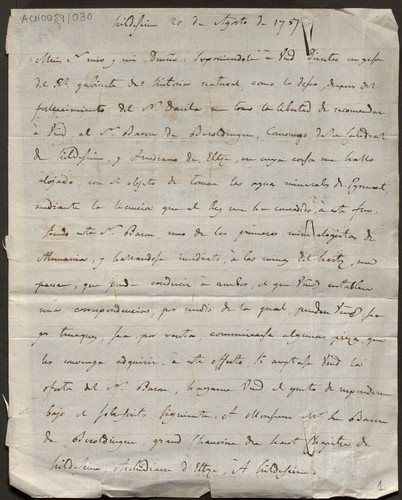 ACN0089/030
Hildesim 20 de Agosto de 1787
Mui Sr. mio, y mi Dueño. Suponiendole à Vmd Director en gefe
del Rl. gavinete de historia natural, como lo dejé, despues del
fallecimiento del Sr. Davila me tomo la libertad de recomendar
à Vmd, al Sr. Baron de Beroldingue, Canonigo de la Catedral
de Hildesim, y Arcediano de Eltze, en cuya casa me hallo
alojado, con el objeto de tomar las aguas minerales de Pyrmont,
mediante la licencia que el Rey me ha concedido à este fin.
Siendo este Sr. Baron uno de los primeros mineralogistas de
Alemania, y hallandose inmediato, à las minas del hartz, me
parece, que puede conducir à ambos, el que Vmd establezca
una correspondencia, por medio de la qual puedan Vms, sea
por trueques, sea por ventas, comunicarse algunas piezas que
les convenga adquirir. à este effecto, si aceptase Vmd la
oferta del Sr. Baron, hagame Vmd el gusto de responderme
bajo el sobrescrito siguiente. A Monsieur Mr. le Baron
de Beroldingue grand Chanoine du haut Chapitre de
Hildesim, Archidiacre d'Eltze, à Hildesim.
1